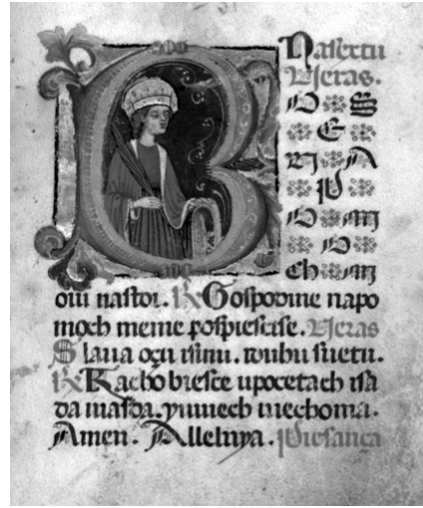 Naſertu
Vjeras.
B O S
E
ZJ A
P
O MJ
O
ch MJ
oiu naſtoi. R Goſpodine napo
moch mene poſpieſciſe. Vjeras
Slaua oçu iſinu. iduhu ſuetu.
R Kacho bieſce upocetach iſa
da iuaſda. yuuiech uiechoma.
Amen. Alleluya. Pieſança